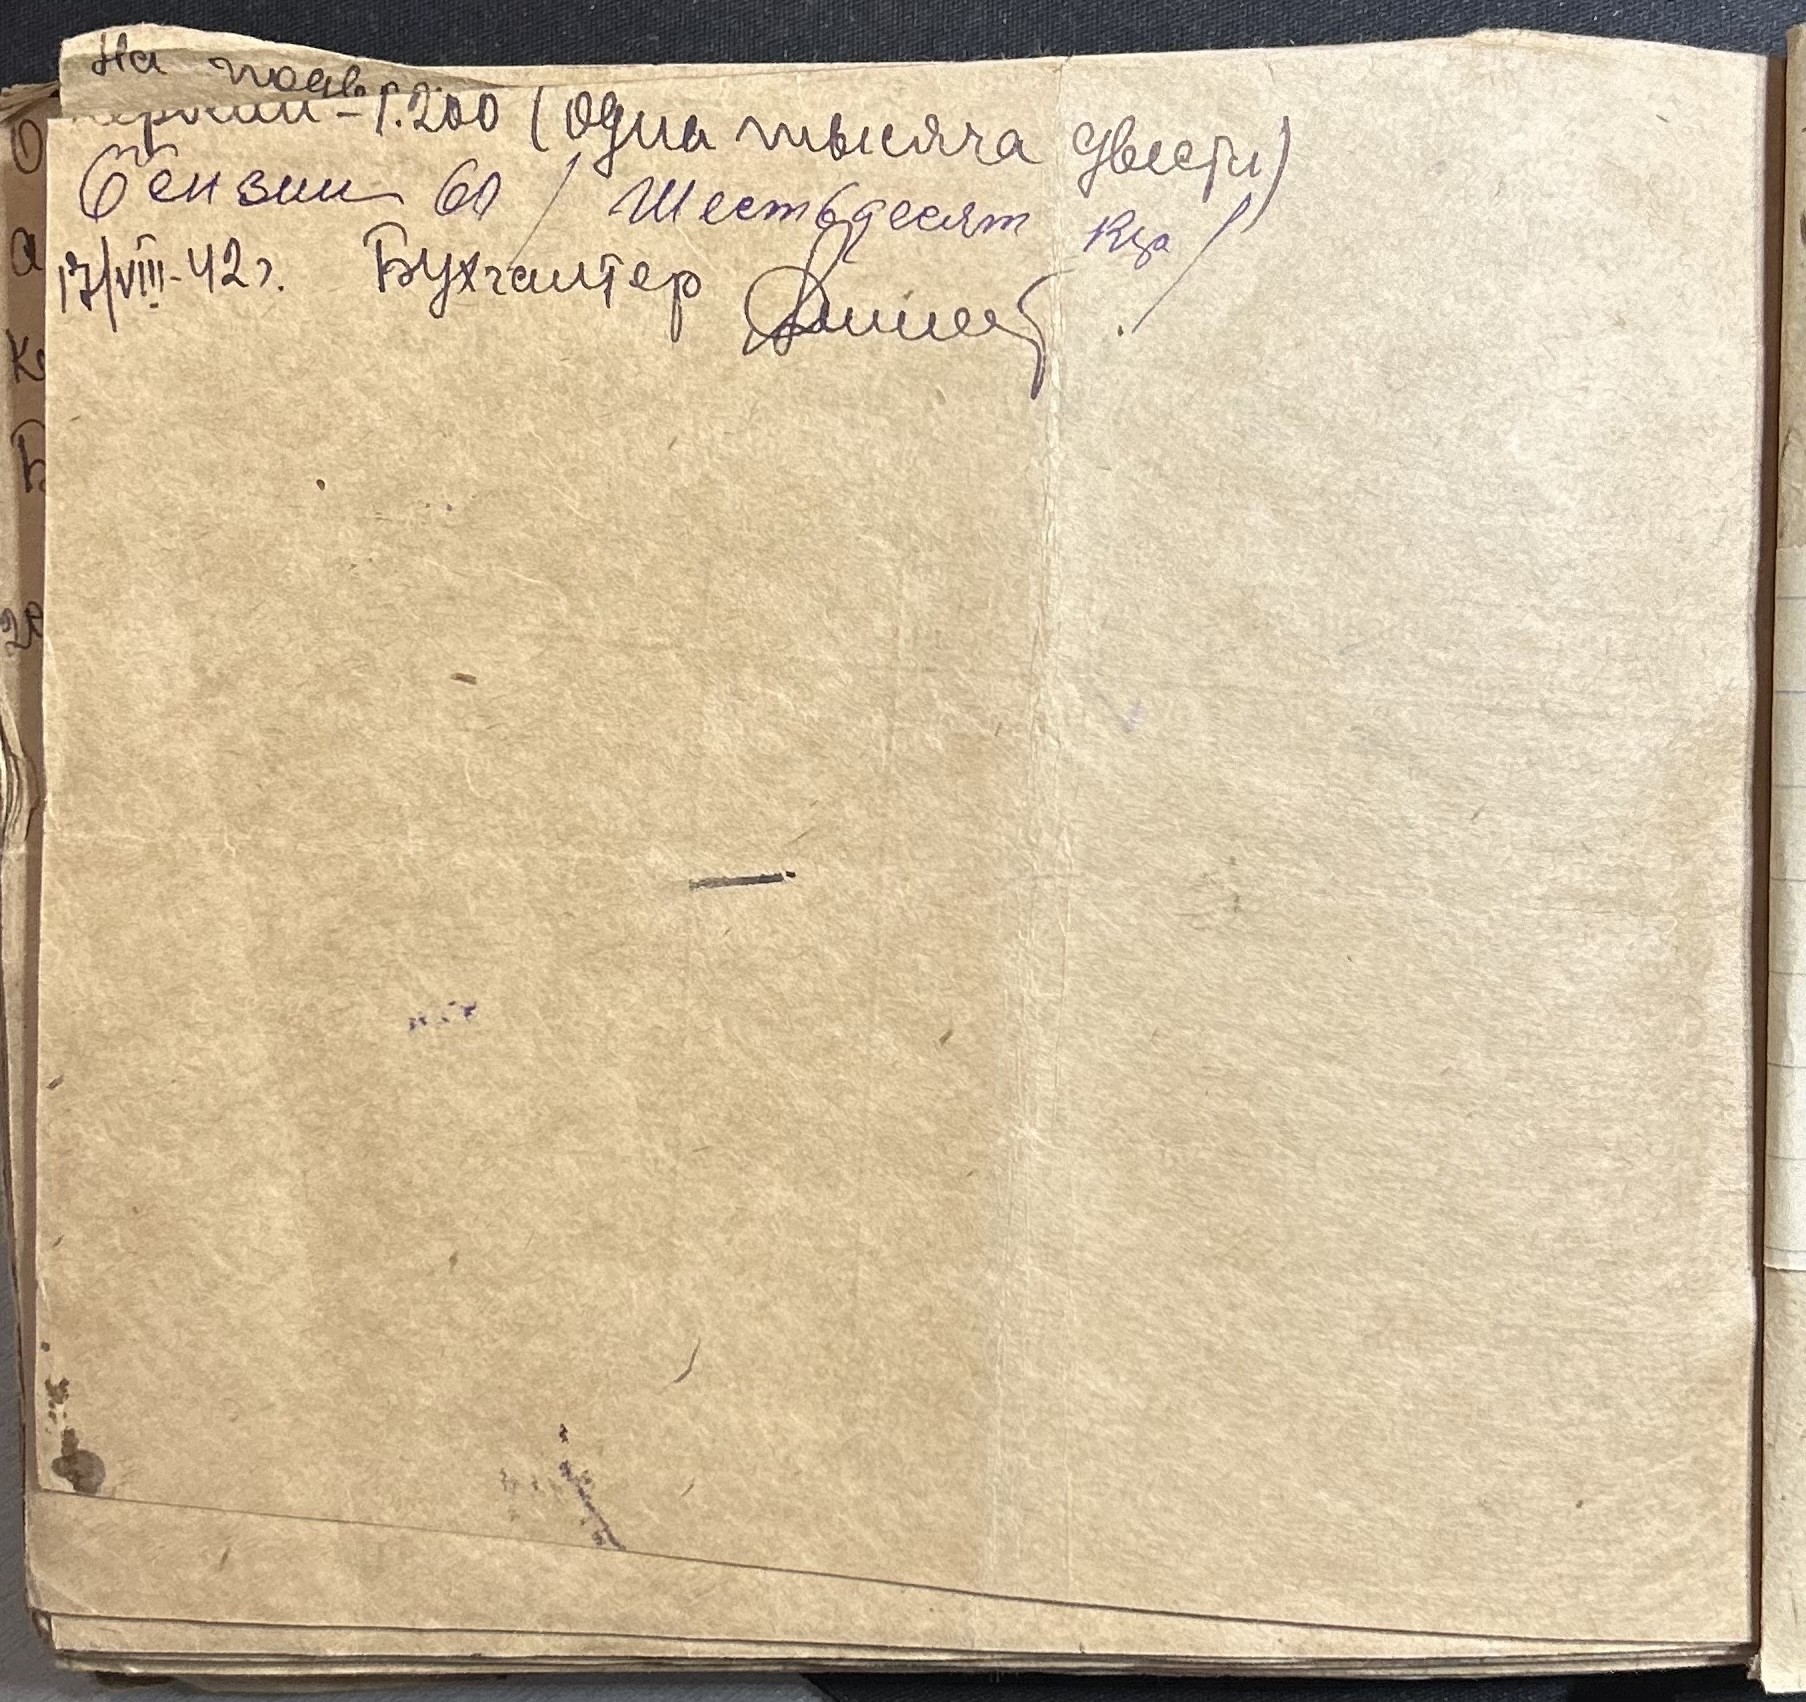 На
керосин - 1.200 (одна тысяча двести)
бензин 60 / Шестьдесят кгр /
17/VIII-42г. Бухгалтер